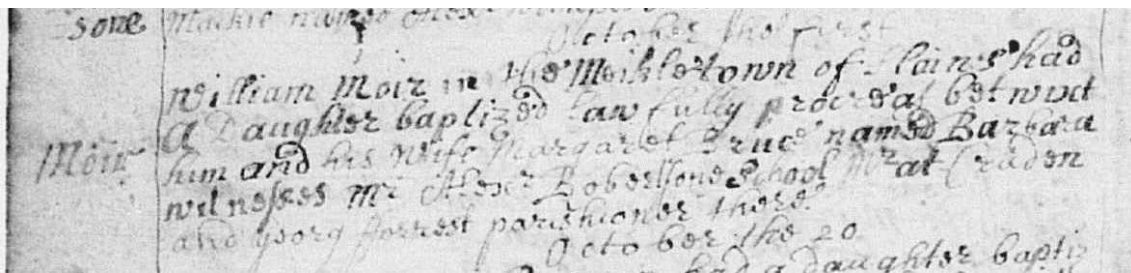 sone Mackie named
October the first
William Moir in the Meikletown of Slains had
a Daughter baptized Lawfully procreat betwixt
Moir him and his wife Margaret Bruce named Barbara
witnesses Mr Alexr Robertsone School Mr at Cruden
and georg fforrest parishioner there
October the 20
had a daughter baptiz